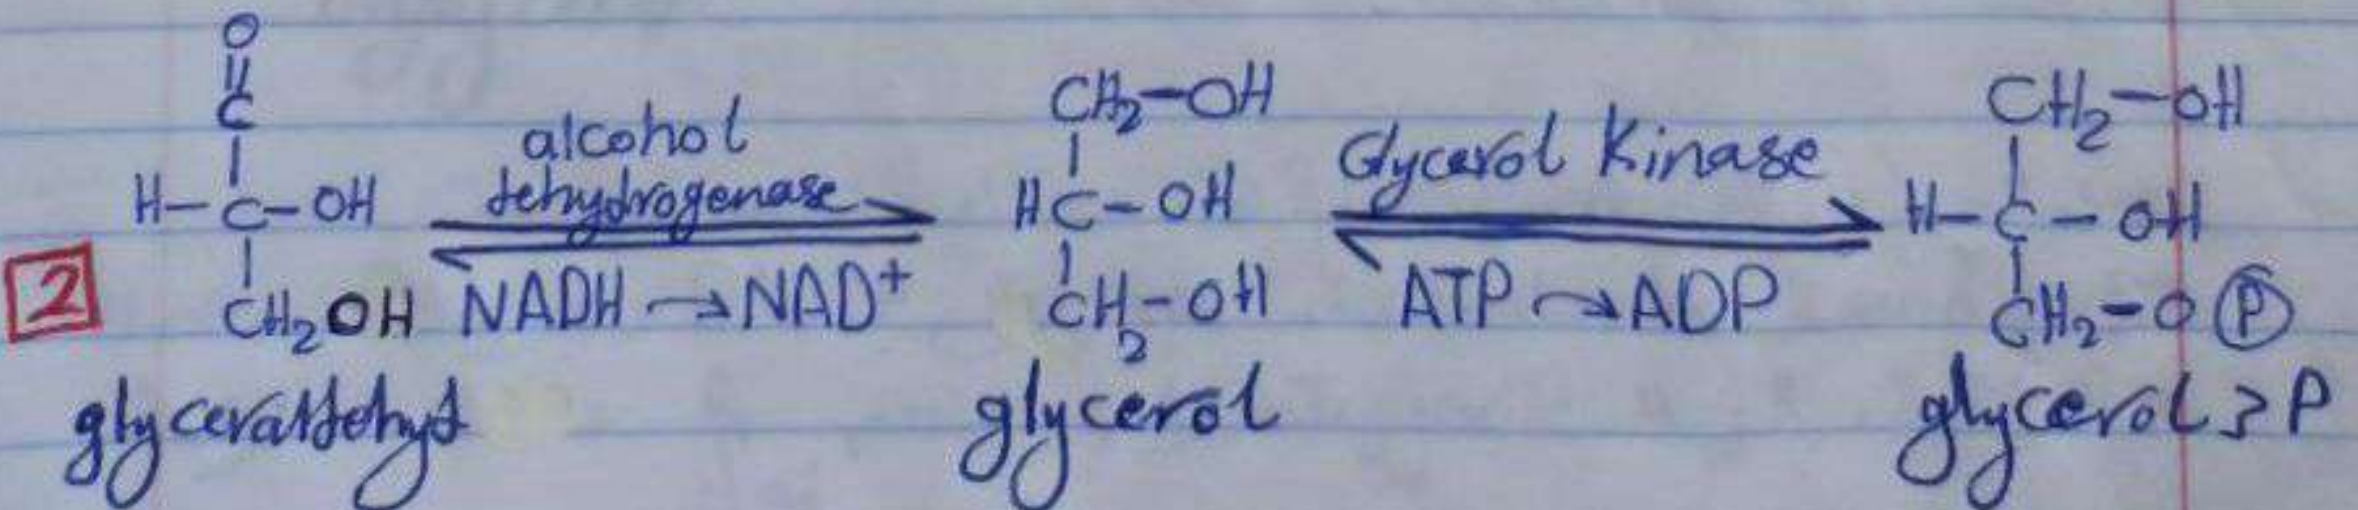 O
||
C
|
H—C—OH
|
CH₂OH
glyceraldehyd
2
alcohol
dehydrogenase
NADH → NAD⁺
CH₂—OH
|
HC—OH
|
CH₂—OH
glycerol
Glycerol Kinase
ATP → ADP
CH₂—OH
|
H—C—OH
|
CH₂—O P
glycerol 3P